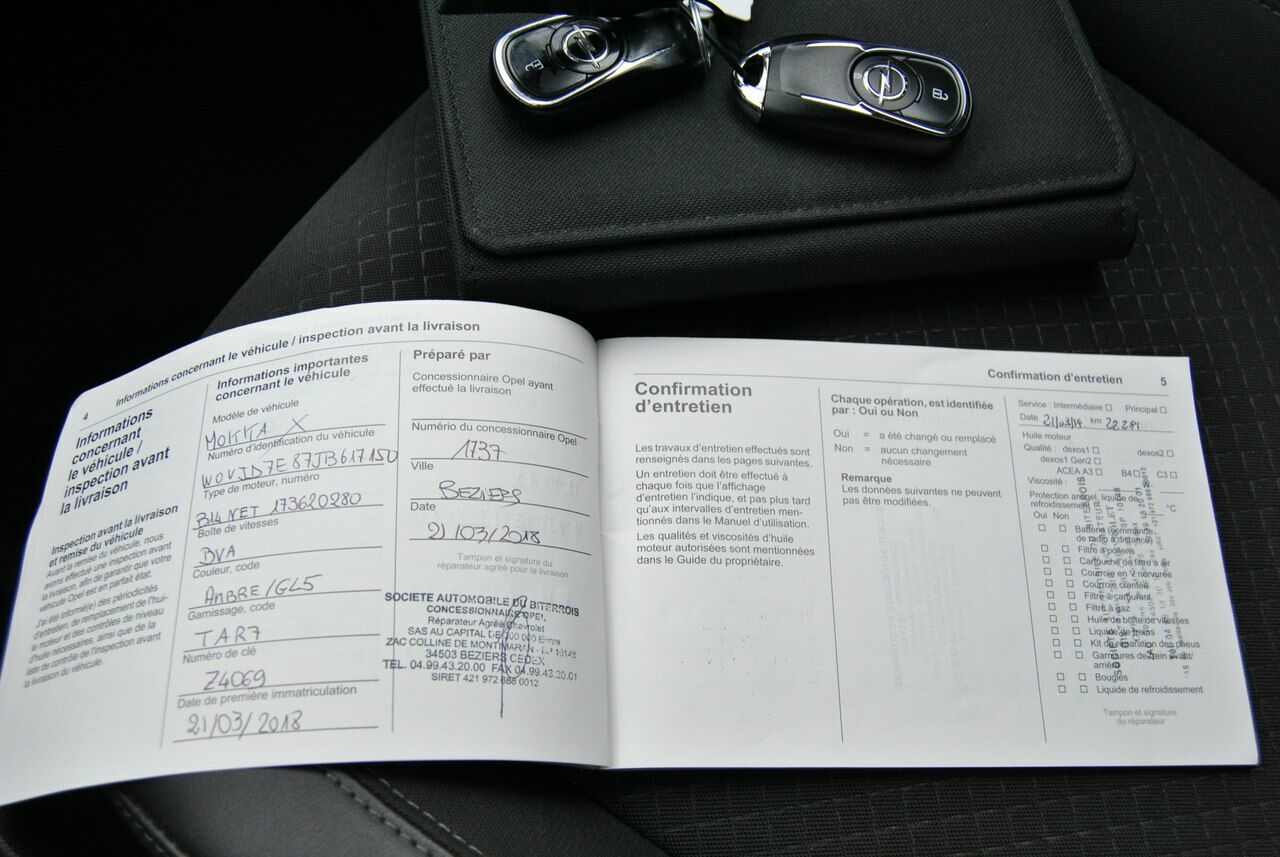 4
Informations concernant le véhicule / inspection avant la livraison
Informations
concernant
le véhicule /
inspection avant
la livraison
Inspection avant la livraison
et remise du véhicule
Avant la remise du véhicule, nous
avons effectué une inspection avant
la livraison, afin de garantir que votre
véhicule Opel est en parfait état.
J'ai été informé(e) des périodicités
d'entretien, de remplacement de l'hui-
le moteur et des contrôles de niveau
d'huile nécessaires, ainsi que de la
liste de contrôle de l'inspection avant
la livraison du véhicule.
Informations importantes
concernant le véhicule
Modèle de véhicule
MOKKA X
Numéro d'identification du véhicule
W0VJD7E87JB617150
Type de moteur, numéro
B14NET 173620280
Boîte de vitesses
BVA
Couleur, code
AMBRE/GL5
Garnissage, code
TAR7
Numéro de clé
Z4069
Date de première immatriculation
21/03/2018
Préparé par
Concessionnaire Opel ayant
effectué la livraison
Numéro du concessionnaire Opel
1737
Ville
BEZIERS
Date
21/03/2018
Tampon et signature du
réparateur agréé pour la livraison
SOCIETE AUTOMOBILE DU BITERROIS
CONCESSIONNAIRE OPEL
Réparateur Agréé Chevrolet
SAS AU CAPITAL DE 300 000 Euros
ZAC COLLINE DE MONTIMARAN - BP 10148
34503 BEZIERS CEDEX
TEL. 04.99.43.20.00 FAX 04.99.43.20.01
SIRET 421 972 688 0012
Confirmation d'entretien 5
Confirmation
d'entretien
Les travaux d'entretien effectués sont
renseignés dans les pages suivantes.
Un entretien doit être effectué à
chaque fois que l'affichage
d'entretien l'indique, et pas plus tard
qu'aux intervalles d'entretien men-
tionnés dans le Manuel d'utilisation.
Les qualités et viscosités d'huile
moteur autorisées sont mentionnées
dans le Guide du propriétaire.
Chaque opération, est identifiée
par : Oui ou Non
Oui = a été changé ou remplacé
Non = aucun changement
nécessaire
Remarque
Les données suivantes ne peuvent
pas être modifiées.
Service : Intermédiaire Principal
Date 21/03/19 km 22281
Huile moteur
Qualité : dexos1 dexos2
dexos1 Gen2
ACEA A3 B4 C3
Viscosité :
Protection antigel, liquide de
refroidissement °C
Oui Non
Batterie commande
de radio à distance
Filtre à pollens
Cartouche de filtre à air
Courroie en V nervurée
Courroie crantée
Filtre à carburant
Filtre à gaz
Huile de boîte de vitesses
Liquide de freins
Kit de réparation des pneus
Garnitures de frein avant/
arrière
Bougies
Liquide de refroidissement
Tampon et signature
du réparateur